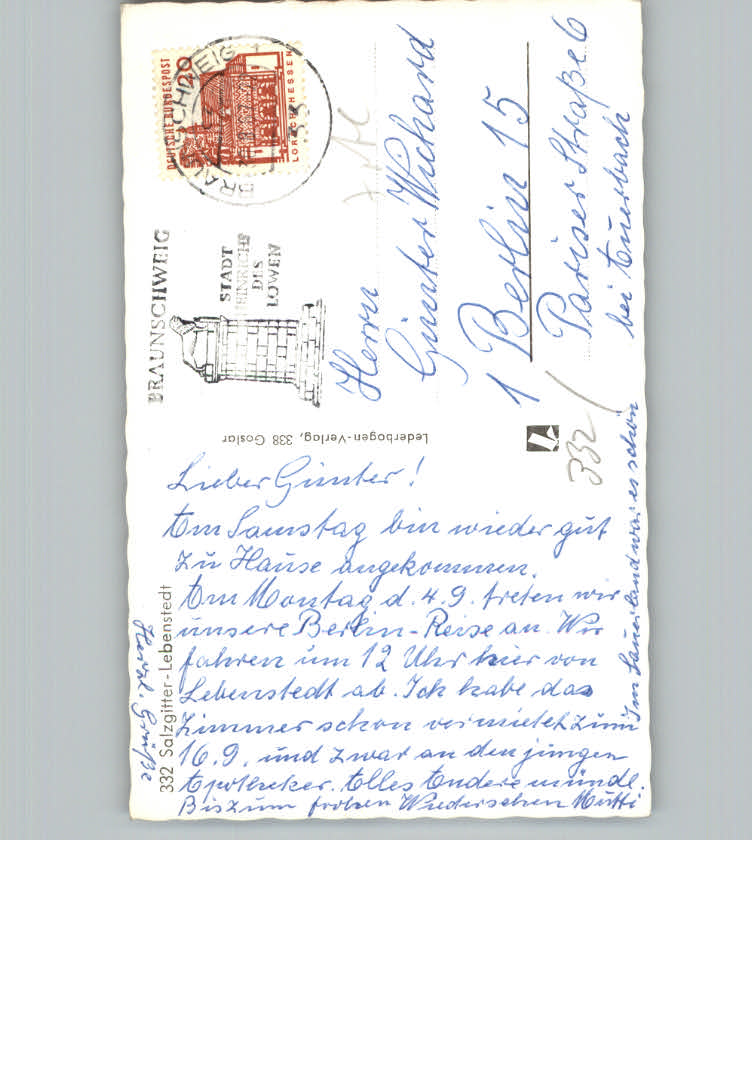 Lieber Günter!
Am Samstag bin wieder gut
zu Hause angekommen.
Am Montag d. 4.9. treten wir
unsere Berlin-Reise an. Wir
fahren um 12 Uhr hier von
Lebenstedt ab. Ich habe das
Zimmer schon vermietet zum
16.9. und zwar an den jungen
Apotheker. Alles Andere mündl.
Bis zum frohen Wiedersehen Mutti
Im Sauerland war es schön
Herzl. Grüße
332 Salzgitter-Lebenstedt
Lederbogen-Verlag, 338 Goslar
BRAUNSCHWEIG
STADT
HEINRICHS
DES
LÖWEN
DEUTSCHE BUNDESPOST
20
LORSCH/HESSEN
BRAUNSCHWEIG 1
Herrn
Günter Wichard
1 Berlin 15
Pariser Straße 6
bei Auerbach
332